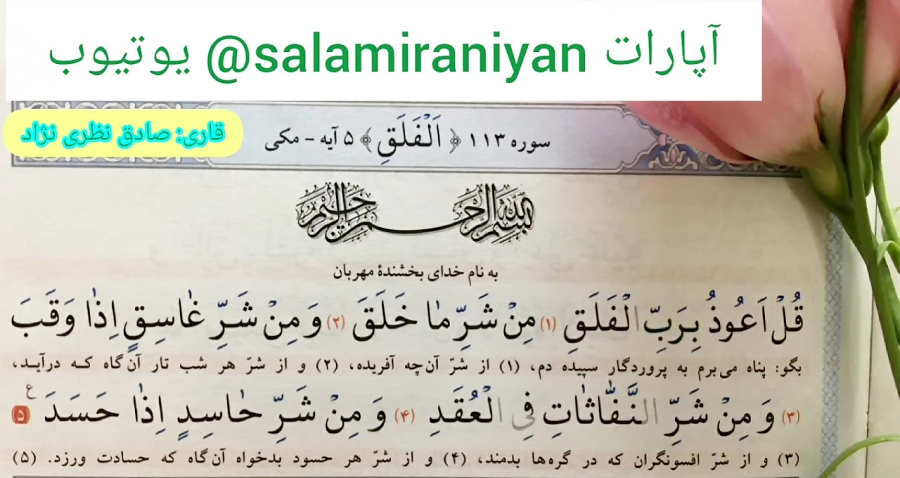 آپارات @salamiraniyan یوتیوب
قاری: صادق نظری نژاد
سوره ۱۱۳ ﴿ اَلْفَلَقِ ﴾ ۵ آیه - مکی
بسم الله الرحمن الرحیم
به نام خدای بخشندهٔ مهربان
قُلْ اَعُوذُ بِرَبِّ الْفَلَقِ (۱) مِنْ شَرِّ مٰا خَلَقَ (۲) وَ مِنْ شَرِّ غٰاسِقٍ اِذٰا وَقَبَ
بگو: پناه می‌برم به پروردگار سپیده دم، (۱) از شرّ آن‌چه آفریده، (۲) و از شرّ هر شب تار آن‌گاه کـه درآیـد،
(۳) وَ مِنْ شَرِّ النَّفّٰاثٰاتِ فِی الْعُقَدِ (۴) وَ مِنْ شَرِّ حٰاسِدٍ اِذٰا حَسَدَ (۵) ع
(۳) و از شرّ افسونگران که در گره‌ها بدمند، (۴) و از شرّ هر حسود بدخواه آن‌گاه که حسادت ورزد. (۵)